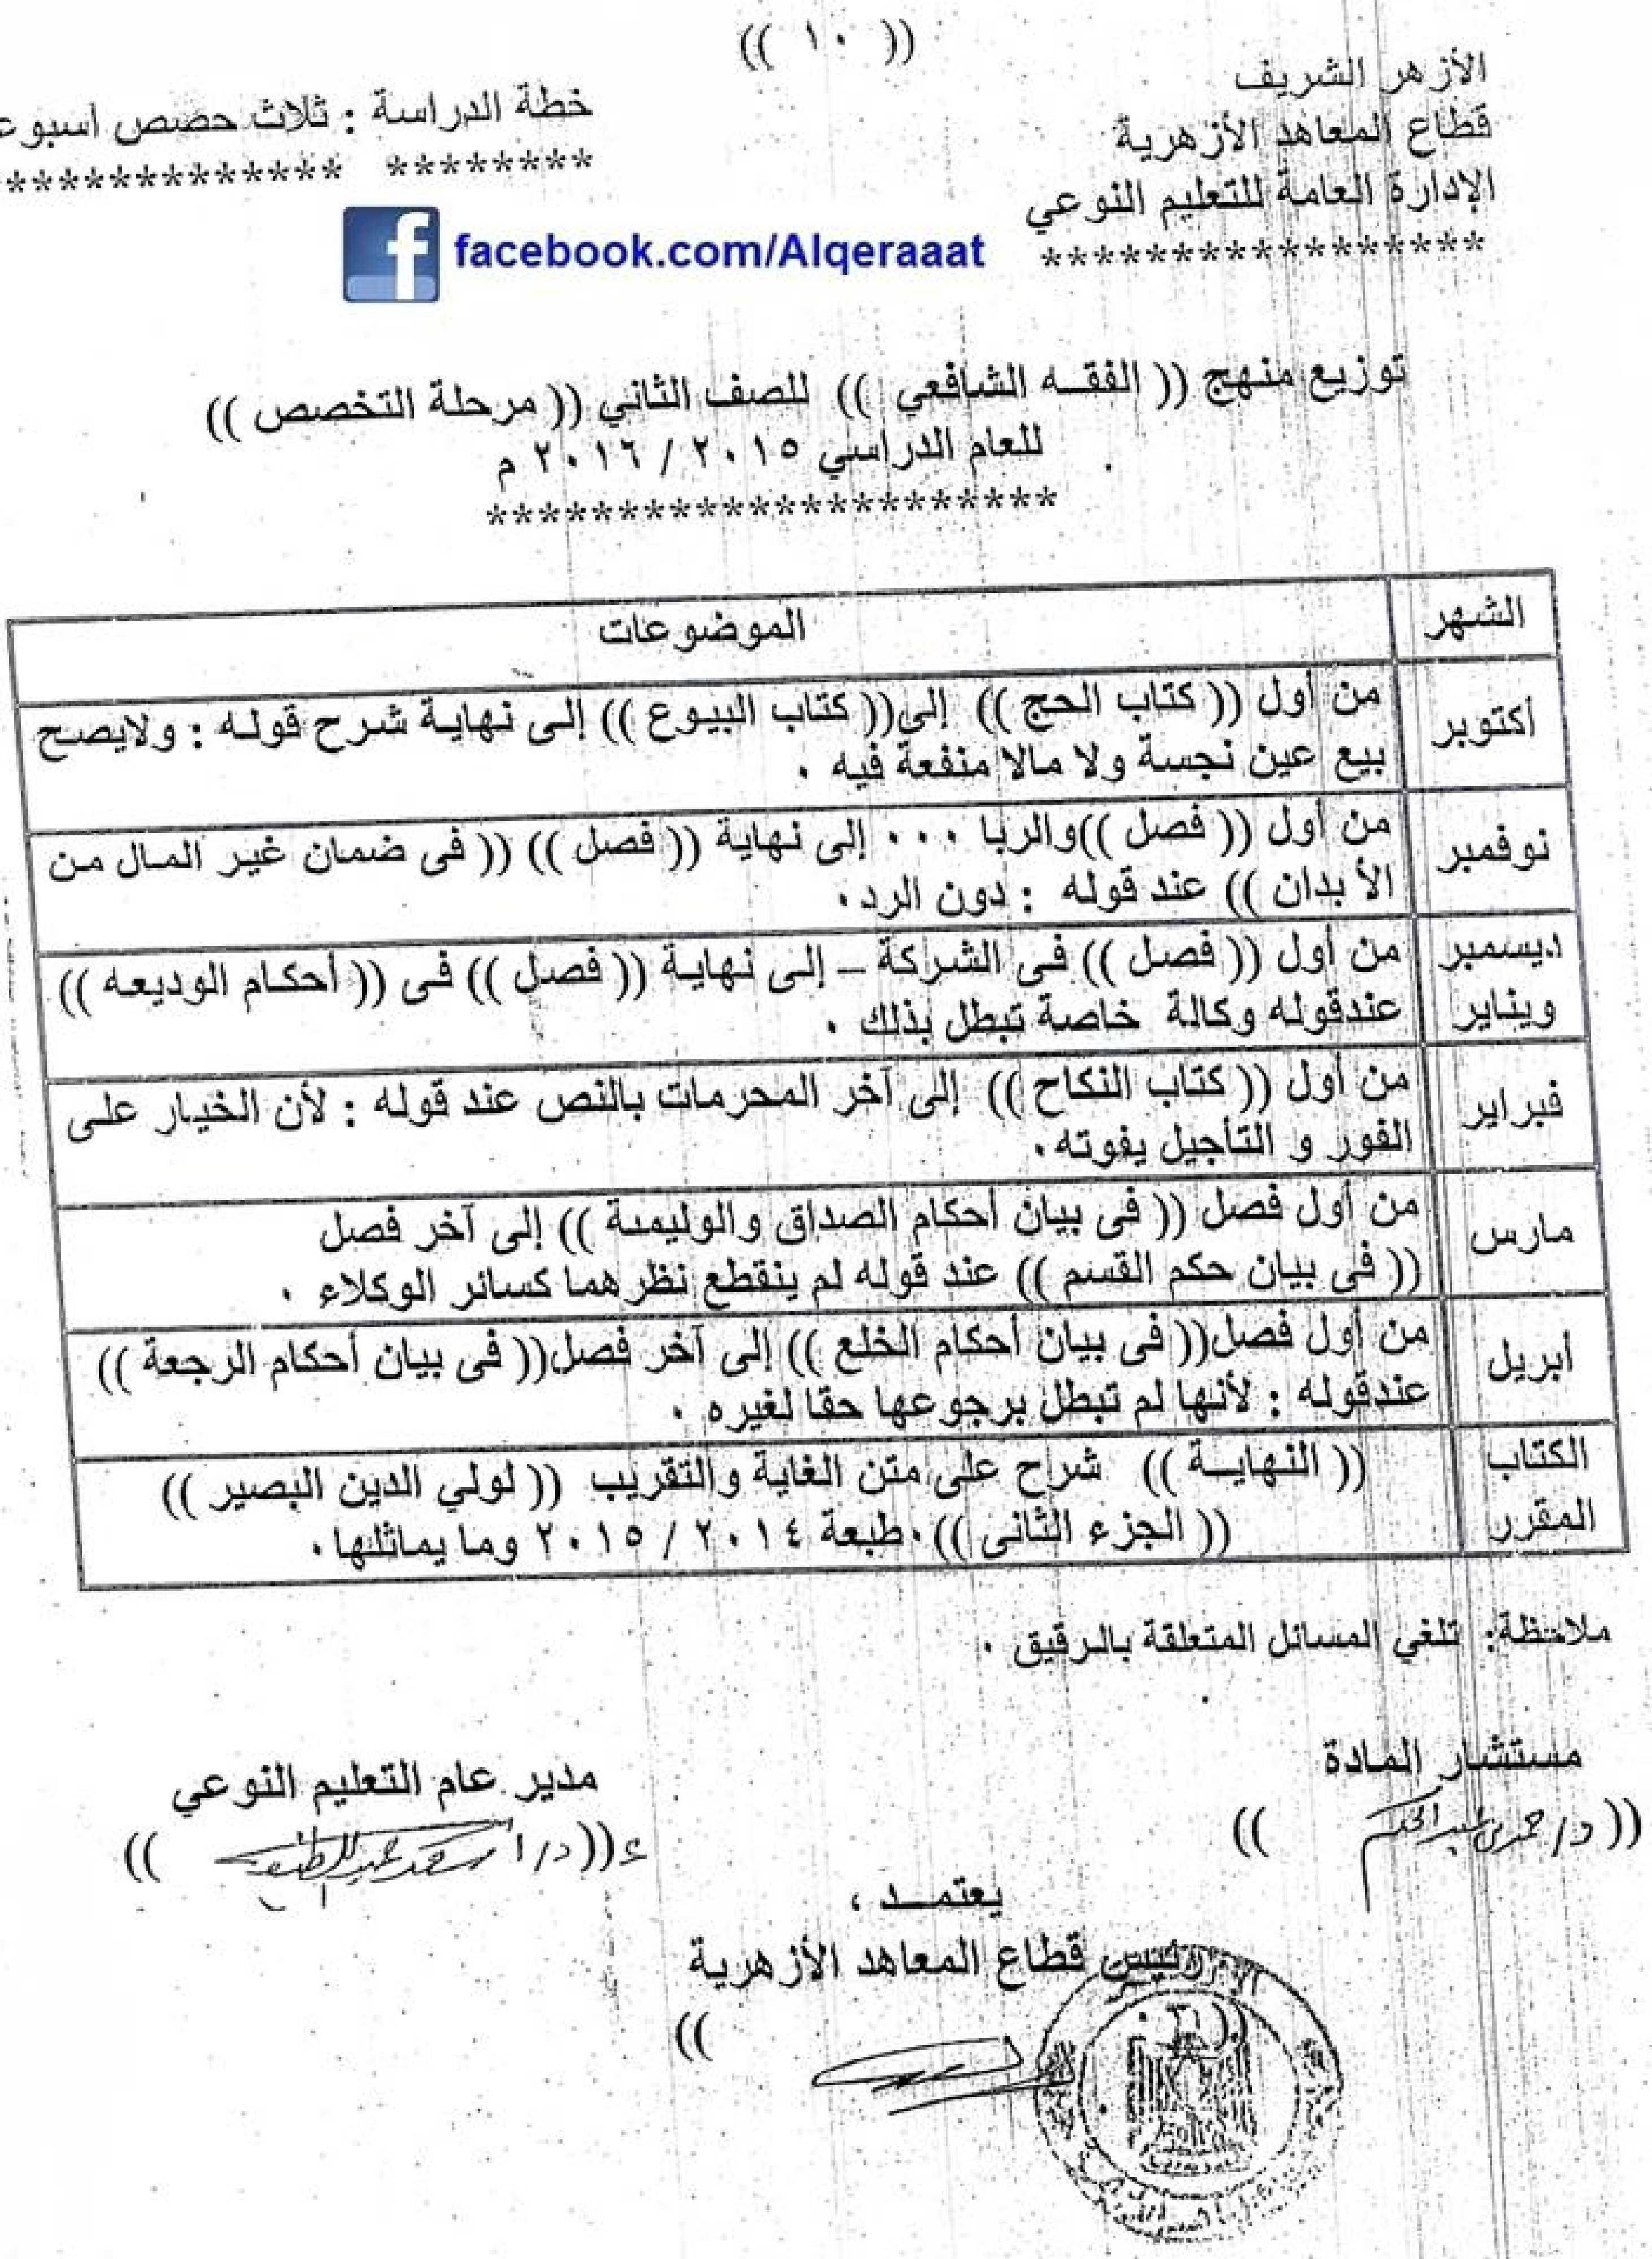 (( ١٠ ))
الأزهر الشريف
قطاع المعاهد الأزهرية
الإدارة العامة للتعليم النوعي
******************
خطة الدراسة : ثلاث حصص اسبوع
******** *************
facebook.com/Alqeraaat
توزيع منهج (( الفقه الشافعي )) للصف الثاني (( مرحلة التخصص ))
للعام الدراسي ٢٠١٥ / ٢٠١٦ م
**********************
الشهر
الموضوعات
أكتوبر
من أول (( كتاب الحج )) إلى(( كتاب البيوع )) إلى نهاية شرح قوله : ولايصح
بيع عين نجسة ولا مالا منفعة فيه .
نوفمبر
من أول (( فصل ))والربا ... إلى نهاية (( فصل )) (( فى ضمان غير المال من
الأبدان )) عند قوله : دون الرد.
ديسمبر
ويناير
من أول (( فصل )) فى الشركة – إلى نهاية (( فصل )) فى (( أحكام الوديعه ))
عندقوله وكالة خاصة تبطل بذلك .
فبراير
من أول (( كتاب النكاح )) إلى آخر المحرمات بالنص عند قوله : لأن الخيار على
الفور و التأجيل يفوته.
مارس
من أول فصل (( فى بيان أحكام الصداق والوليمة )) إلى آخر فصل
(( فى بيان حكم القسم )) عند قوله لم ينقطع نظرهما كسائر الوكلاء .
أبريل
من أول فصل(( فى بيان أحكام الخلع )) إلى آخر فصل(( فى بيان أحكام الرجعة ))
عندقوله : لأنها لم تبطل برجوعها حقا لغيره .
الكتاب
المقرر
(( النهاية )) شرح على متن الغاية والتقريب (( لولي الدين البصير ))
(( الجزء الثانى )).طبعة ٢٠١٤ / ٢٠١٥ وما يماثلها.
ملاحظة: تلغي المسائل المتعلقة بالرقيق .
مستشار المادة
مدير عام التعليم النوعي
يعتمد ،
رئيس قطاع المعاهد الأزهرية